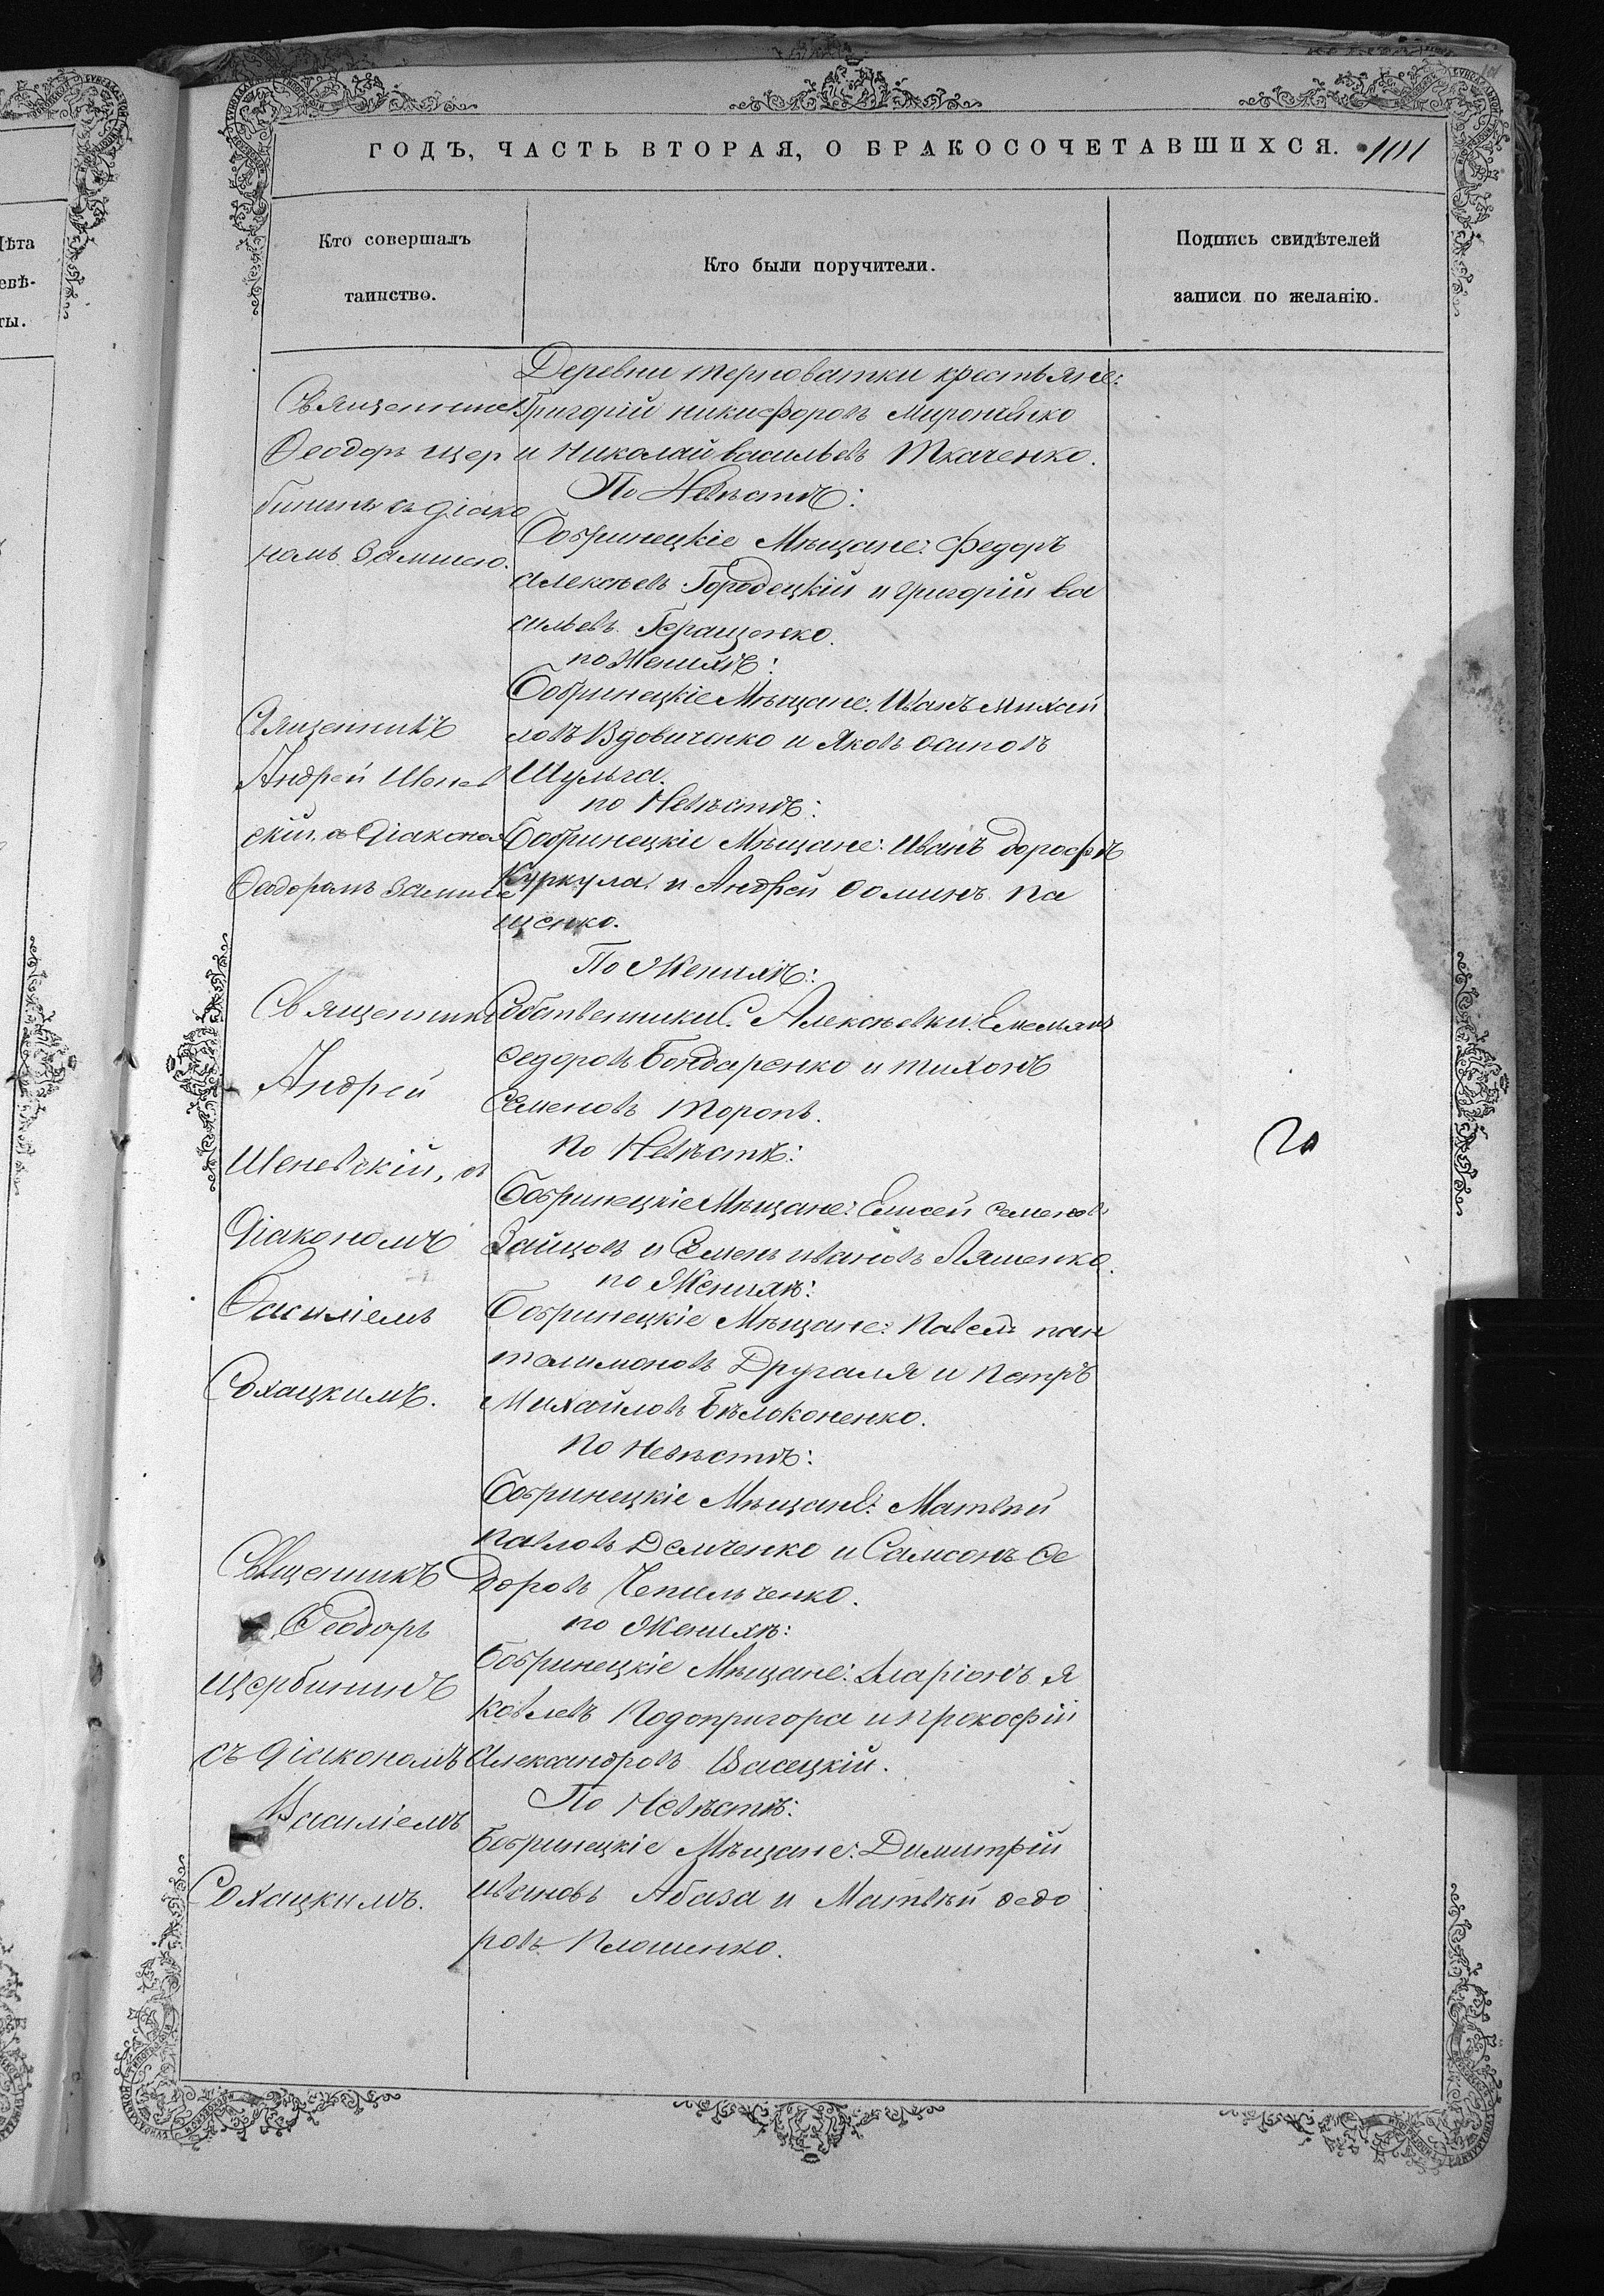 ГОДЪ, ЧАСТЬ ВТОРАЯ, О БРАКОСОЧЕТАВШИХСЯ.
Кто совершалъ
таинство.
Кто были поручители.
Подпись свидѣтелей
записи по желанію.
Священникъ
Ѳеодоръ Щер
бининъ съ діако
номъ
Священникъ
Андрей Шенев
скій съ Діакономъ
Священникъ
Андрей
Шеневскій, съ
Діакономъ
Василіемъ
Сохацкимъ.
Священникъ
Ѳеодоръ
Щербининъ
съ діакономъ
Василіемъ
Сохацкимъ.
Деревни Терноватки крестьяне:
Григорій Никифоровъ Мироненко
и Николай Васильевъ Ткаченко.
По Невѣстѣ:
Бобринецкіе Мѣщане: Федоръ
Алексѣевъ Городецкій и Григорій Ва
сильевъ Геращенко.
по Женихѣ:
Бобринецкіе Мѣщане: Иванъ Михай
ловъ Вдовиченко и Яковъ Осиповъ
Шульга.
по Невѣстѣ:
Бобринецкіе Мѣщане: Иванъ Дорофѣ
Куркула и Андрей Ѳоминъ Па
щенко.
По Женихѣ:
Собственники С. Алексѣевки: Емельянъ
Ѳедоровъ Бондаренко и Тихонъ
Семеновъ Торопъ.
По Невѣстѣ:
Бобринецкіе Мѣщане: Елисей Семеновъ
Зайцовъ и Семенъ Ивановъ Ляшенко.
по Женихѣ:
Бобринецкіе Мѣщане: Павелъ Пан
толимоновъ Другаля и Петръ
Михайловъ Бѣлоконенко.
По Невѣстѣ:
Бобринецкіе Мѣщане: Матвѣй
Павловъ Демченко и Самсонъ Ѳе
доровъ Чепильченко.
по Женихѣ:
Бобринецкіе Мѣщане: Иларіонъ Я
ковлевъ Подопригора и Прокофій
Александровъ Васецкій.
По Невѣстѣ:
Бобринецкіе Мѣщане: Димитрій
Ивановъ Абаза и Матвѣй Ѳедо
ровъ Плошенко.